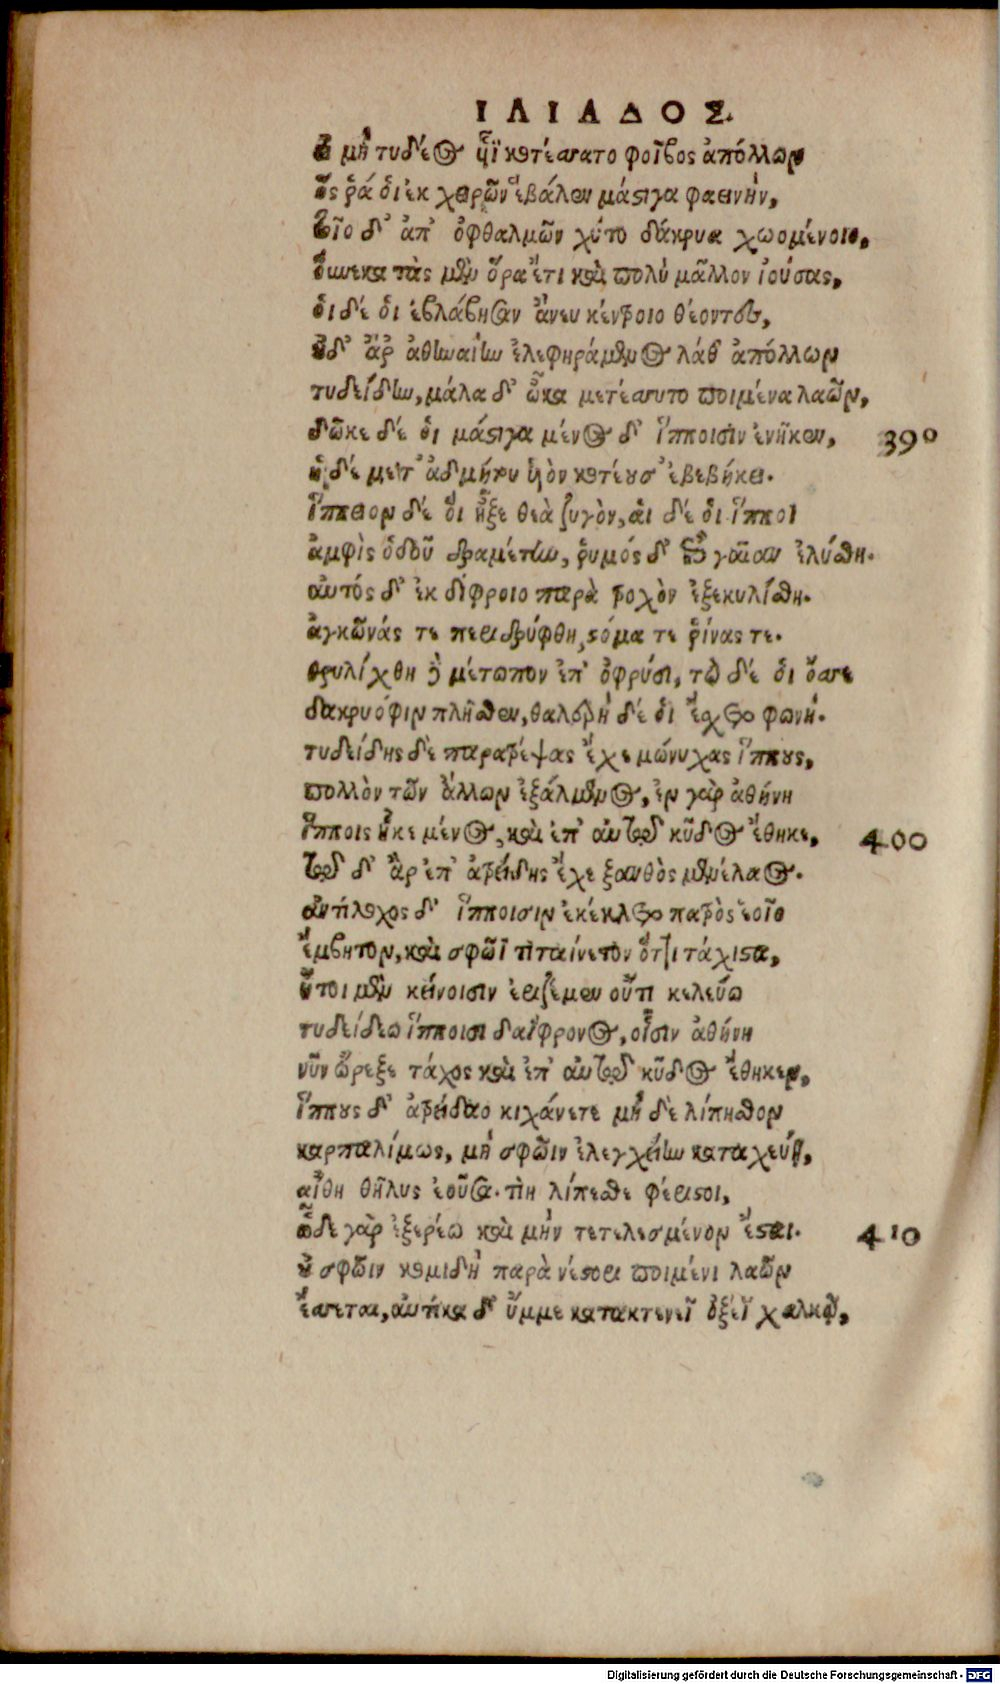 ΙΛΙΑΔΟΣ.
εἰ μὴ τυδέος υἷϊ κοτέσσατο φοῖβος ἀπόλλων
ὅς ῥά οἱ ἐκ χειρῶν ἔβαλεν μάστιγα φαεινήν,
τοῖο δ' ἀπ' ὀφθαλμῶν χύτο δάκρυα χωομένοιο,
οὕνεκα τὰς μὲν ὅρα ἔτι καὶ πολὺ μᾶλλον ἰούσας,
οἱ δέ οἱ ἐβλάβησαν ἄνευ κέντροιο θέοντες,
οὐδ' ἄρ ἀθηναίην ἐλεφηράμενος λάθ ἀπόλλων
τυδείδην, μάλα δ' ὦκα μετέσσυτο ποιμένα λαῶν,
δῶκε δέ οἱ μάστιγα μένος δ' ἵπποισιν ἐνῆκεν, 390
ἡ δέ μετ' ἀδμήτου υἱὸν κοτέουσ' ἐβεβήκει.
ἵππειον δέ οἱ ἦξε θεὰ ζυγὸν, αἱ δέ οἱ ἵπποι
ἀμφὶς ὁδοῦ δραμέτην, ῥυμός δ' ἐπὶ γαῖαν ἐλύσθη.
αὐτός δ' ἐκ δίφροιο παρὰ τροχὸν ἐξεκυλίσθη.
ἀγκῶνάς τε περιδρύφθη, στόμα τε ῥίνας τε.
θρυλίχθη δὲ μέτωπον ἐπ' ὀφρύσι, τὼ δέ οἱ ὄσσε
δακρυόφιν πλῆσθεν, θαλερὴ δέ οἱ ἔσχετο φωνή.
τυδείδης δὲ παρατρέψας ἔχε μώνυχας ἵππους,
πολλὸν τῶν ἄλλων ἐξάλμενος, ἐν γὰρ ἀθήνη
ἵπποις ἧκε μένος, καὶ ἐπ' αὐτῷ κῦδος ἔθηκε, 400
τῷ δ' ἄρ ἐπ' ἀτρείδης ἔχε ξανθὸς μενέλαος.
ἀντίλοχος δ' ἵπποισιν ἐκέκλετο πατρὸς ἑοῖο
ἔμβητον, καὶ σφῶϊ τιταίνετον ὅττι τάχιστα,
ἤτοι μὲν κείνοισιν ἐριζέμεν οὔτι κελεύω
τυδείδεω ἵπποισι δαΐφρονος, οἷσιν ἀθήνη
νῦν ὤρεξε τάχος καὶ ἐπ' αὐτῷ κῦδος ἔθηκεν,
ἵππους δ' ἀτρείδαο κιχάνετε μὴ δὲ λίπησθον
καρπαλίμως, μὴ σφῶϊν ἐλεγχείην καταχεύῃ,
αἴθη θῆλυς ἐοῦσα. τὶη λίπεσθε φέριστοι,
ὧδε γὰρ ἐξερέω καὶ μὴν τετελεσμένον ἔσται. 410
οὐ σφῶϊν κομιδὴ παρὰ νέστορι ποιμένι λαῶν
ἔσσεται, αὐτίκα δ' ὔμμε κατακτενεῖ ὀξέϊ χαλκῷ,
Digitalisierung gefördert durch die Deutsche Forschungsgemeinschaft - DFG